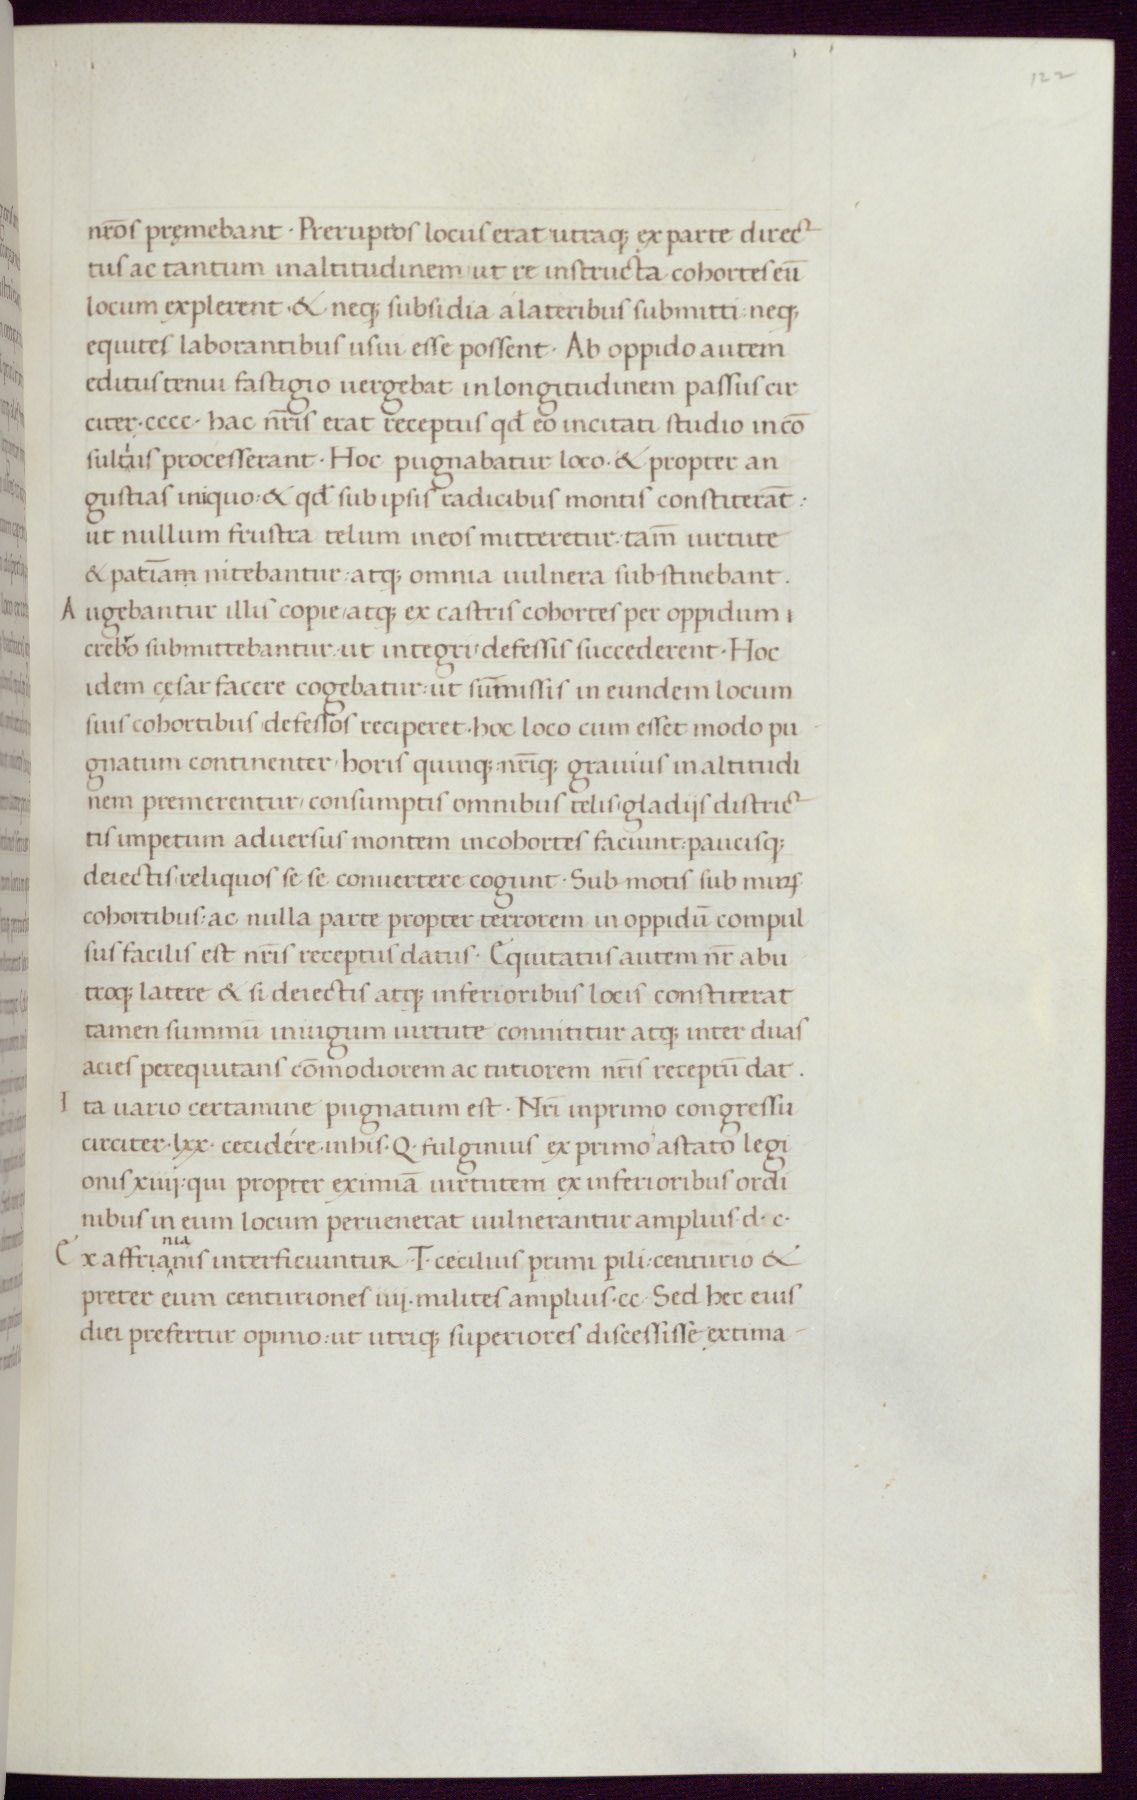 122
nr̄os pręmebant · Preruptos locus erat utraq; ex parte direc
tus ac tantum inaltitudinem ut re instructa cohortes eū
locum explerent · & neq; subsidia alateribus submitti : neq;
equites laborantibus usui esse possent · Ab oppido autem
editus tenui fastigio uergebat in longitudinem passus cir
citer · cccc · hac nr̄is erat receptus qđ eo incitati studio incō
sultius processerant · Hoc pugnabatur loco · & propter an
gustias iniquo : & qđ sub ipsis radicibus montis constiterāt :
ut nullum frustra telum ineos mitteretur : tam̄ uirtute
& patīam nitebantur : atq; omnia uulnera sub stinebant .
Augebantur illis copie , atq; ex castris cohortes per oppidum
crebro submittebantur : ut integri defessis succederent · Hoc
idem cęsar facere cogebatur : ut sum̄issis in eundem locum
suis cohortibus defessos reciperet · hoc loco cum esset modo pu
gnatum continenter , horis quinq; nr̄iq; grauius inaltitudi
nem premerentur , consumptis omnibus telis , gladijs distric
tis impetum aduersus montem incohortes faciunt : paucisq;
deiectis , reliquos se se conuertere cogunt · Sub motis sub muros
cohortibus : ac nulla parte propter terrorem in oppidū compul
sus facilis est nr̄is receptus datus · Equitatus autem nr̄ abu
troq; latere & si deiectis atq; inferioribus locis constiterat
tamen summū iniugum uirtute connititur atq; inter duas
acies perequitans cōmodiorem ac tutiorem nr̄is receptū dat .
Ita uario certamine pugnatum est · Nr̄i inprimo congressu
circiter · lxx · cecidére . inhis · Q · fulginius ex primo astato legi
onis xiiij : qui propter eximiā uirtutem ex inferioribus ordi
nibus in eum locum peruenerat uulnerantur amplius · d · c ·
nia
Ex affrianis interficiuntur · T · cecilius primi pili : centurio &
preter eum centuriones iiij · milites amplius · cc · Sed hec eius
diei prefertur opinio : ut utriq; superiores discessisse extima